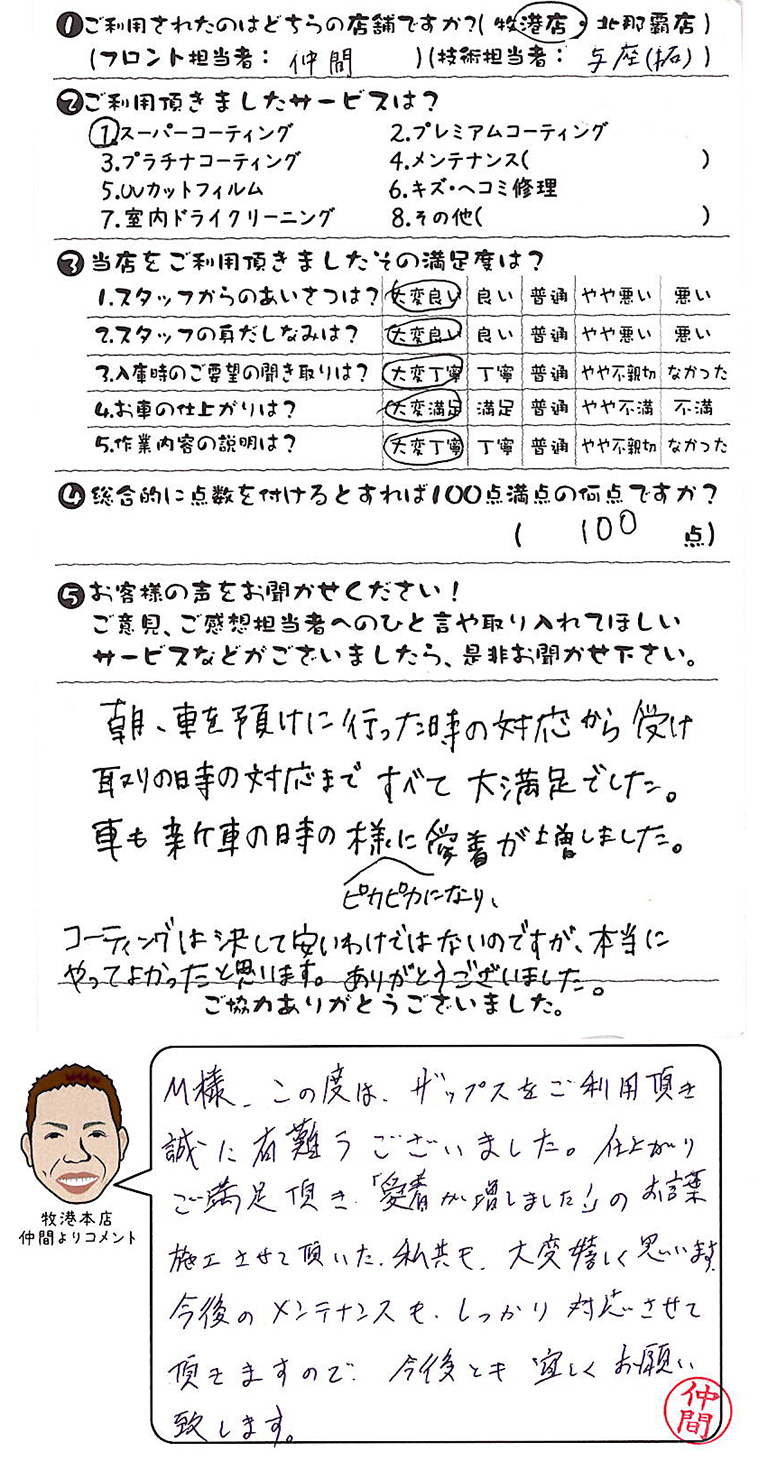 ❶ご利用されたのはどちらの店舗ですか?(牧港店・北那覇店)
(フロント担当者： 仲間 )(技術担当者： 与座(拓))
❷ご利用頂きましたサービスは？
1.スーパーコーティング 2.プレミアムコーティング
3.プラチナコーティング 4.メンテナンス( )
5.UVカットフィルム 6.キズ・ヘコミ修理
7.室内ドライクリーニング 8.その他( )
❸当店をご利用頂きましたその満足度は？
1.スタッフからのあいさつは？ 大変良い 良い 普通 やや悪い 悪い
2.スタッフの身だしなみは？ 大変良い 良い 普通 やや悪い 悪い
3.入庫時のご要望の聞き取りは？ 大変丁寧 丁寧 普通 やや不親切 なかった
4.お車の仕上がりは？ 大変満足 満足 普通 やや不満 不満
5.作業内容の説明は？ 大変丁寧 丁寧 普通 やや不親切 なかった
❹総合的に点数を付けるとすれば100点満点の何点ですか？
( 100 点)
❺お客様の声をお聞かせください！
ご意見、ご感想担当者へのひと言や取り入れてほしい
サービスなどがございましたら、是非お聞かせ下さい。
朝、車を預けに行った時の対応から受け
取りの時の対応まですべて大満足でした。
車も新ケ車の時の様に愛着が増しました。
ピカピカになり、
コーティングは決して安いわけではないのですが、本当に
やってよかったと思います。ありがとうございました。
ご協力ありがとうございました。
M様、この度は、ザップスをご利用頂き
誠に有難うございました。仕上がり
ご満足頂き、「愛着が増しました!」のお言葉
施工させて頂いた、私共も、大変嬉しく思います。
今後のメンテナンスも、しっかり対応させて
頂きますので、今後とも宜しくお願い
致します。
仲間
牧港本店
仲間よりコメント